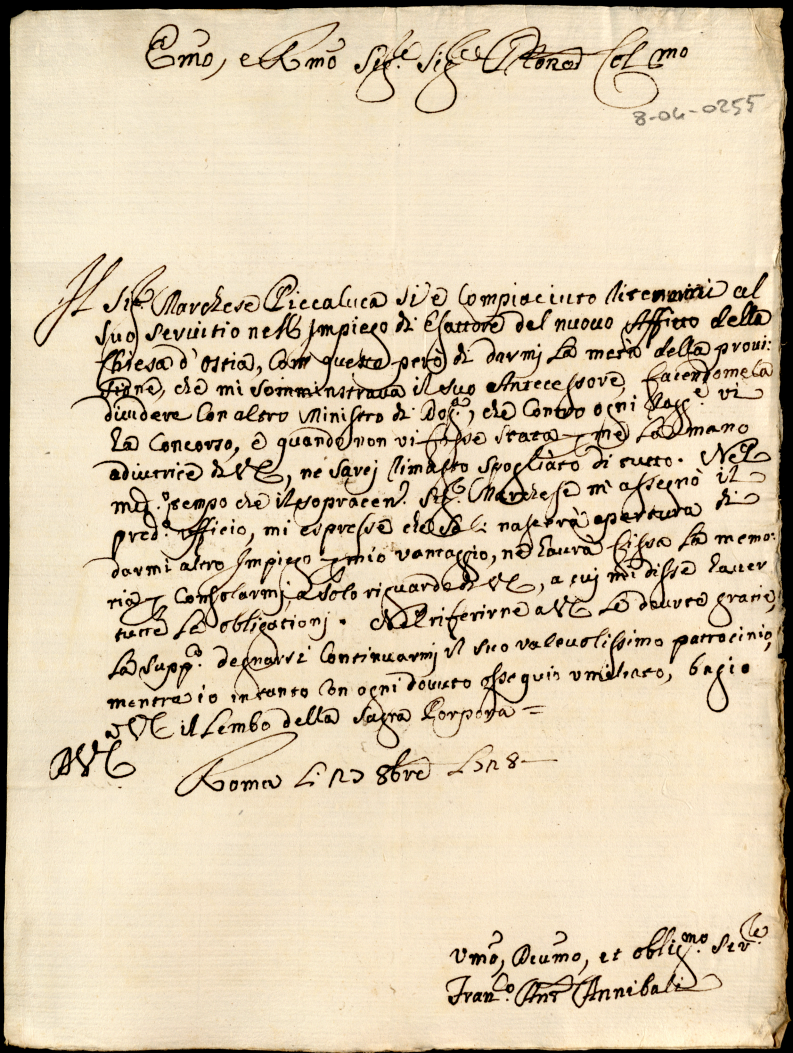 Emo, e Rmo Sig.re Sig.re Pron Col.mo
8-04-0255
Il Sig.re Marchese Piccaluca si è compiaciuto ritenermi al
suo servitio nell'impiego di Esattore del nuovo Affitto della
Chiesa d'Ostia, con questo però di darmi la metà della provi:
sione, che mi somministrava il suo Antecessore, facendomela
dividere con altro Ministro di Dog.a, che contro ogni vi
ha concorso, e quando non vi fosse stata p me la mano
adiutrice di VE, ne sarei rimasto spogliato di tutto. Nel
med.o tempo che il sopracen.o Sig.re Marchese mi assegnò il
pred.o ufficio, mi espresse che se li nascerà apertura di
darmi altro impiego p mio vantaggio, ne haurà fissa la memo:
ria p consolarmi, a solo riguardo di VE, a cui mi disse hauer
tutte le obligationi. Nel riferirne a VE le dovute grazie,
la supp.o degnarsi continuarmi il suo valevolissimo patrocinio,
mentre io intanto con ogni dovuto ossequio umiliato, bagio
a VE il Lembo della Sagra Porpora =
A VE
Roma li 8bre
Umo, Devmo, et oblig.mo Ser.re
Fran.co Ant.o Annibali